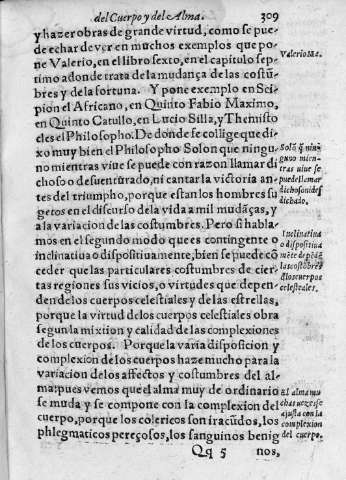 del Cuerpo y del Alma. 309
y hazer obras de grande virtud, como se pue-
de echar de ver en muchos exemplos que po-
ne Valerio, en el libro sexto, en el capitulo sep-
timo adonde trata de la mudãça de las costũ-
bres y de la fortuna. Y pone exemplo en Sci-
pion el Africano, en Quinto Fabio Maximo,
en Quinto Catullo, en Lucio Silla, y Themisto
cles el Philosopho. De donde se collige que di-
xo muy bien el Philosopho Solon que ningu-
no mientras viue se puede con razon llamar di
choso o desuenturado, ni cantar la victoria an-
tes del triumpho, porque estan los hombres su
getos en el discurso de la vida a mil mudãças, y
a la variacion de las costumbres. Pero si habla-
mos en el segundo modo que es contingente o
inclinatiua o dispositiuamente, bien se puede cõ
ceder que las particulares costumbres de cier-
tas regiones sus vicios, o virtudes que depen-
den de los cuerpos celestiales y de las estrellas,
porque la virtud de los cuerpos celestiales obra
segun la mixtion y calidad de las complexiones
de los cuerpos. Porque la varia disposicion y
complexion de los cuerpos haze mucho para la
variacion de los affectos y costumbres del al-
ma: pues vemos que el alma muy de ordinario
se muda y se compone con la complexion del
cuerpo, porque los colericos son iracũdos, los
phlegmaticos pereçosos, los sanguinos benig
Qq 5 nos,
Valerio Ma.
Solõ q̃ nin-
guno mien-
tras viue se
puede llamar
dichoso ni des
dichado.
Inclinatiua
o dispositiua
mẽte depẽdẽ
las costũbres
d̃ los cuerpos
celestiales.
El alma mu
chas vezes se
ajusta con la
complexion
del cuerpo.